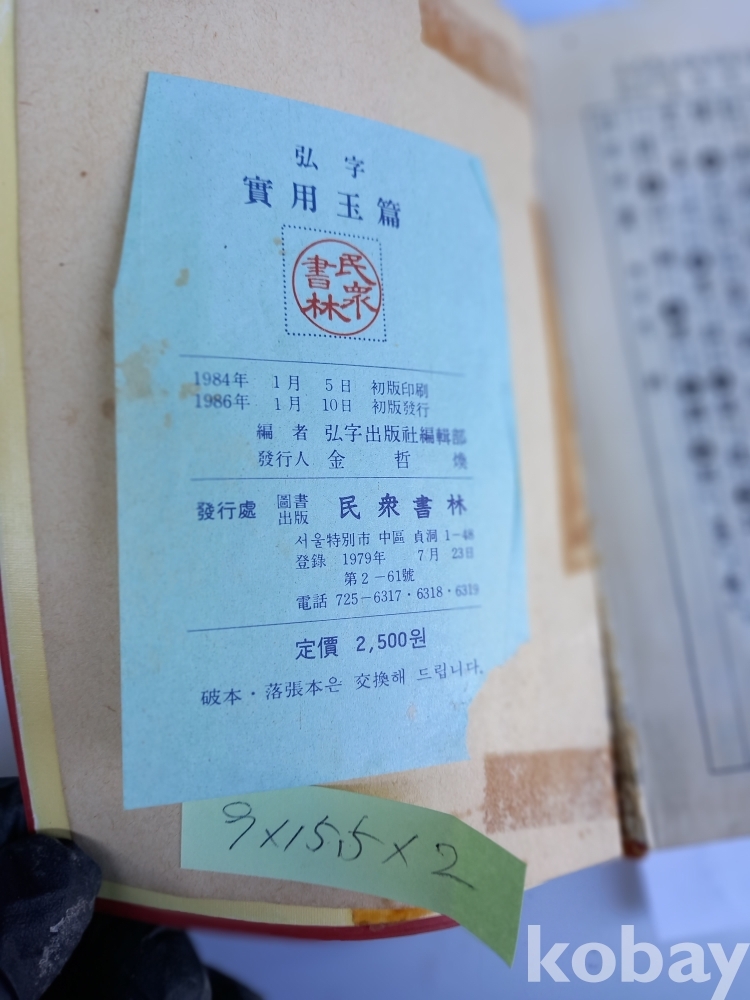 弘字
實用玉篇
民衆
書林
1984年 1月 5日 初版印刷
1986年 1月 10日 初版發行
編者 弘字出版社編輯部
發行人 金哲煥
發行處 圖書出版 民衆書林
서울特別市 中區 貞洞 1-48
登錄 1979年 7月 23日
第2-61號
電話 725-6317·6318·6319
定價 2,500원
破本·落張本은 交換해 드립니다.
9×15.5×2
kobay